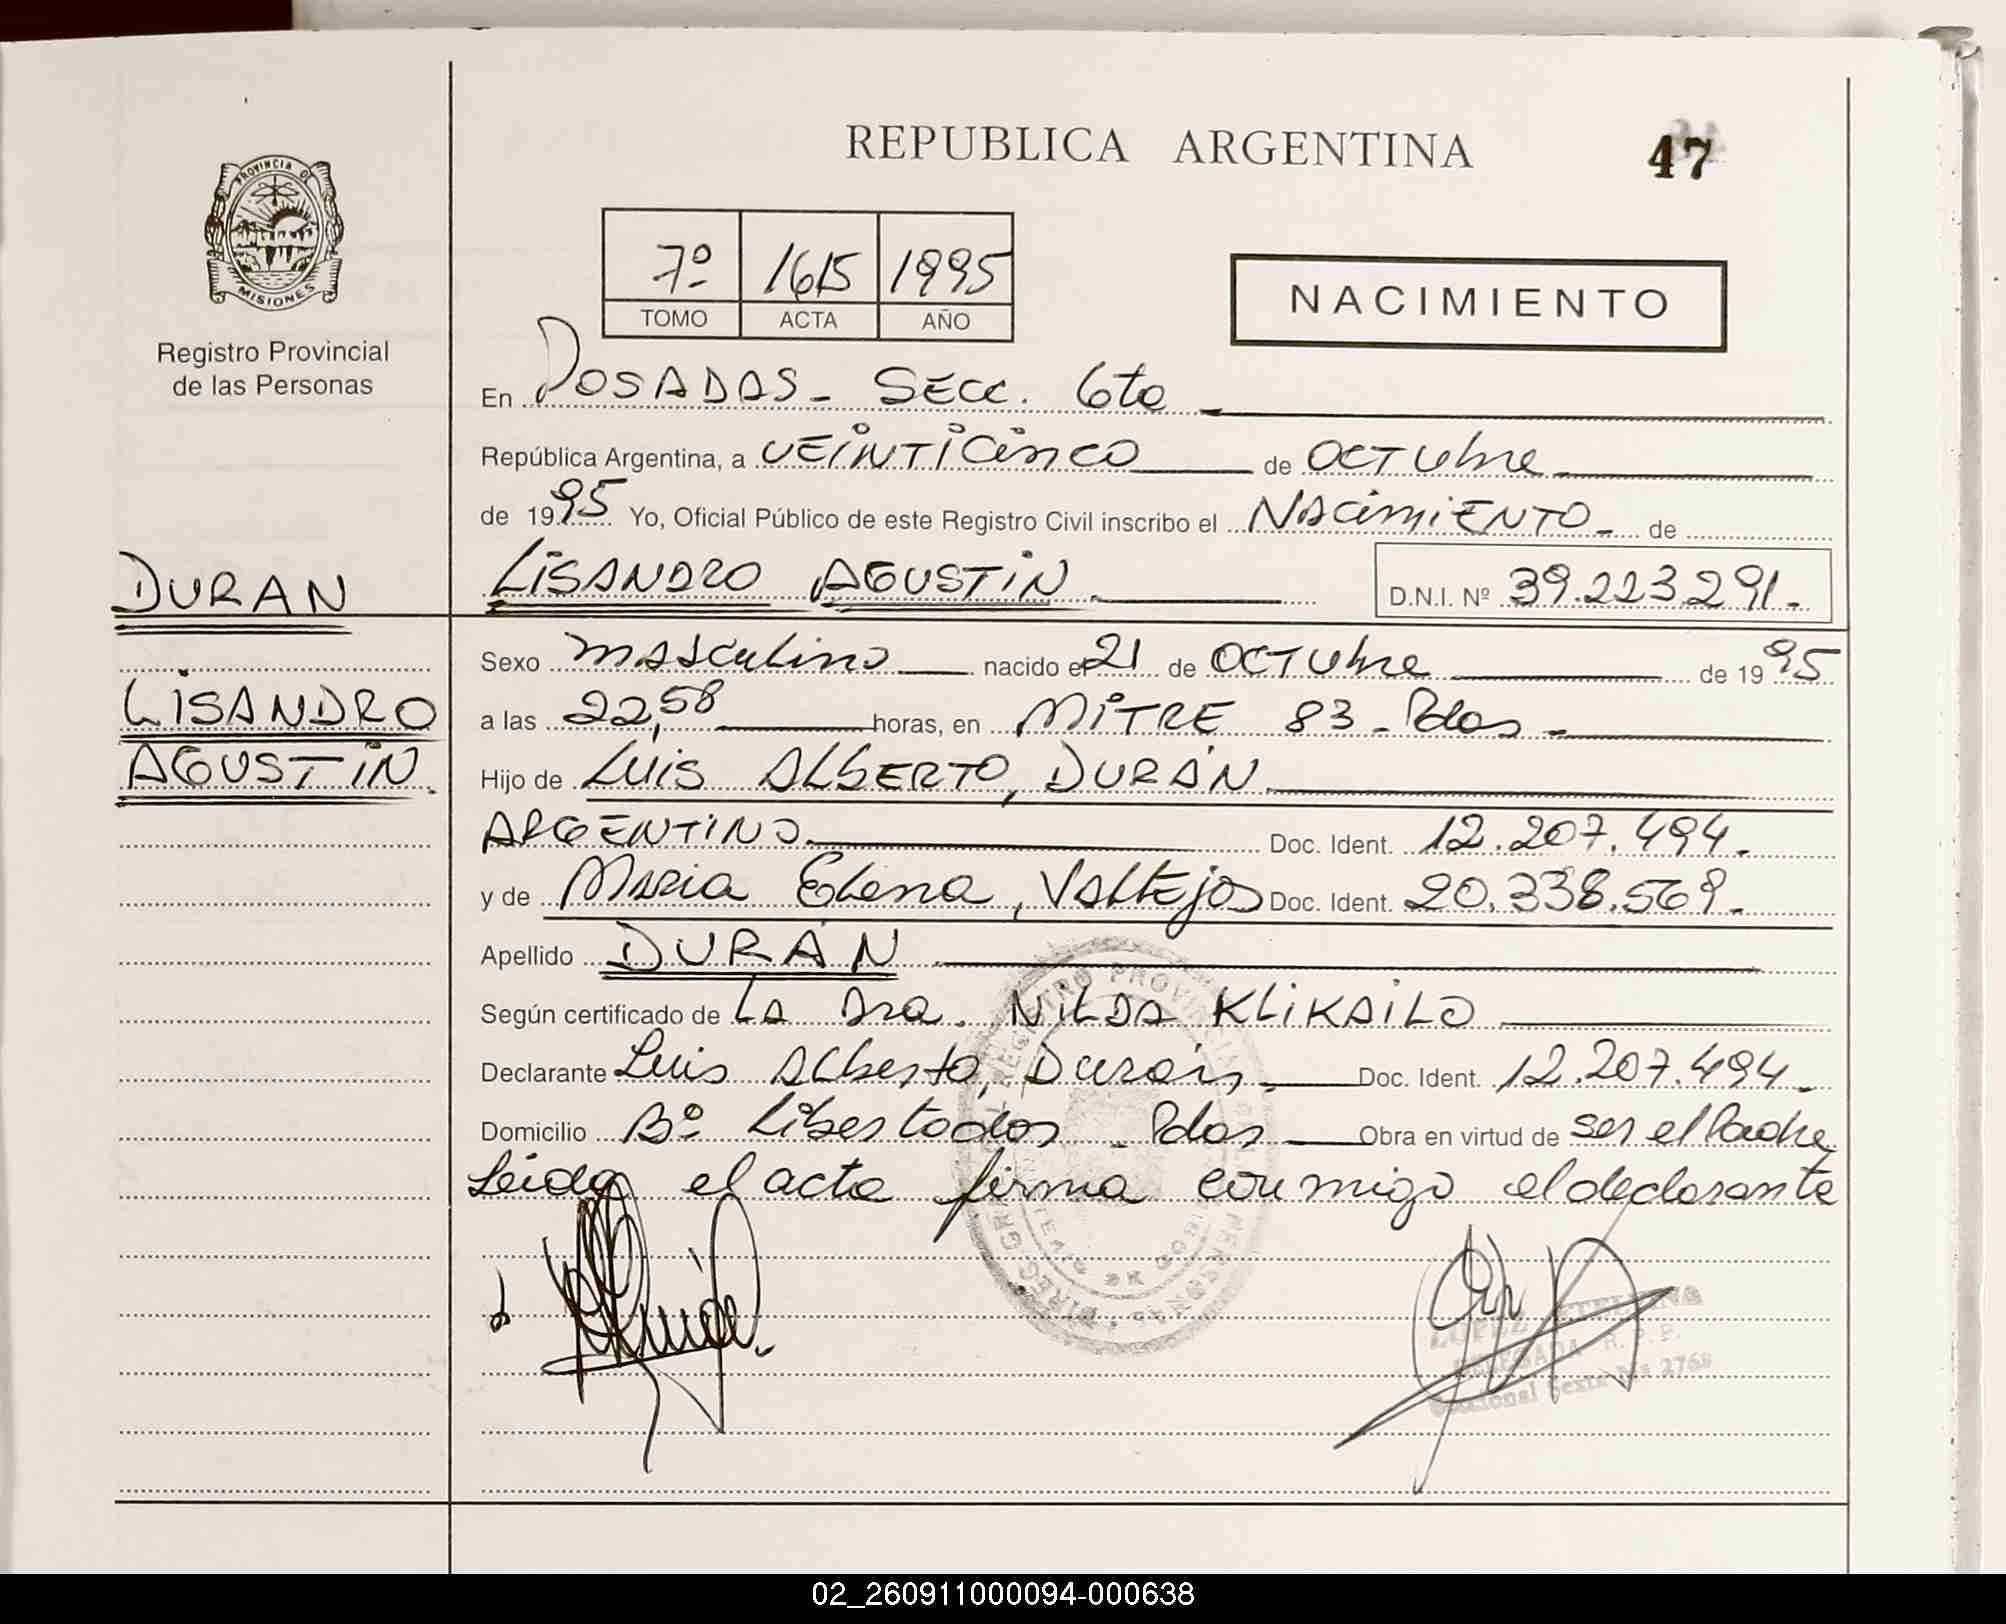 REPUBLICA ARGENTINA
47
PROVINCIA DE
MISIONES
Registro Provincial
de las Personas
7º 1615 1995
TOMO ACTA AÑO
NACIMIENTO
En POSADAS - SECC. 6ta
República Argentina, a VEINTICINCO de OCTUbre
de 1995 Yo, Oficial Público de este Registro Civil inscribo el NACIMIENTO - de
DURAN
LISANDRO AGUSTIN
LISANDRO AGUSTIN. D.N.I. Nº 39.223.291.-
Sexo masculino nacido el 21 de OCTUbre de 1995
a las 22,58 horas, en MITRE 83 - Pdas -
Hijo de LUIS ALBERTO, DURÁN
ARGENTINO. Doc. Ident. 12.207.494.-
y de Maria Elena, Vallejos Doc. Ident. 20.338.569.-
Apellido DURÁN
Según certificado de LA Dra. NILDA KLIKAILO
Declarante Luis Alberto, Durán. Doc. Ident. 12.207.494.-
Domicilio Bº Libertador - Pdas Obra en virtud de ser el Padre
Leida el acta firma conmigo el declarante
DELEGADA R. P. P.
Seccional Sexta
02_260911000094-000638